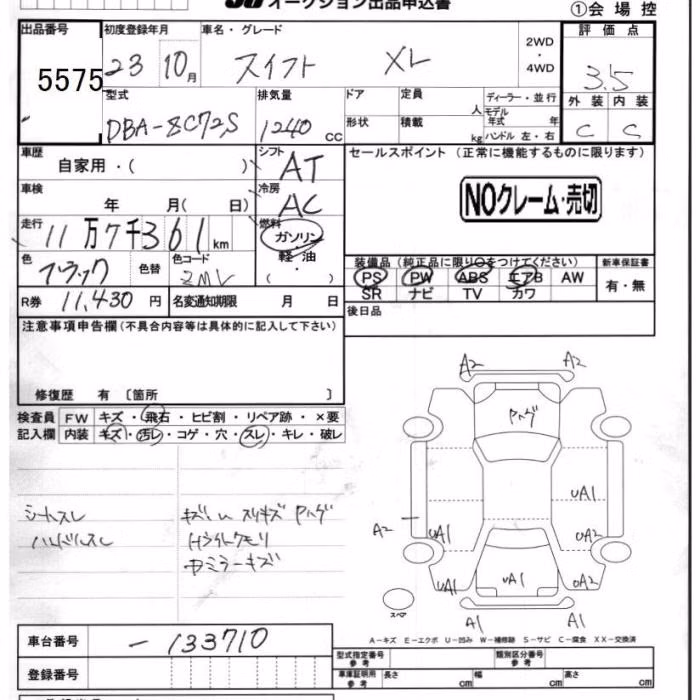 オークション出品申込書
①会場控
出品番号 初度登録年月 車名・グレード 評価点
5575 23年 10月 スイフト XL 2WD・4WD 3.5
型式 排気量 ドア 定員 人 ディーラー・並行 外装 内装
DBA-ZC72S 1240cc 形状 積載 kg モデル年式 年 ハンドル 左・右 C C
車歴 自家用・( ) シフト AT セールスポイント (正常に機能するものに限ります)
車検 年 月( 日) 冷房 AC NOクレーム・売切
走行 11万7千361km 燃料 ガソリン 軽油・( )
色 ブラック 色替 色コード ZMV
装備品 (純正品に限り○をつけてください) 新車保証書
PS PW ABS エアB AW 有・無
SR ナビ TV カワ
R券 11,430円 名変通知期限 月 日
後日品
注意事項申告欄(不具合内容等は具体的に記入して下さい)
修復歴 有 〔箇所 〕
検査員記入欄 FW キズ・飛石・ヒビ割・リペア跡・×要
内装 キズ・汚レ・コゲ・穴・スレ・キレ・破レ
シートスレ
ハンドルスレ
キズ凹 スリキズ Pハゲ
Hライトクモリ
Rミラーキズ
A2 A2
Pハゲ
UA1
A2 UA1 UA2
UA1 UA1 UA2
スペア A1 A1
A-キズ E-エクボ U-凹み W-補修跡 S-サビ C-腐食 XX-交換済
車台番号 -133710
登録番号
型式指定番号 参考 類別区分番号 参考
車庫証明用 参考 長さ cm 幅 cm 高さ cm